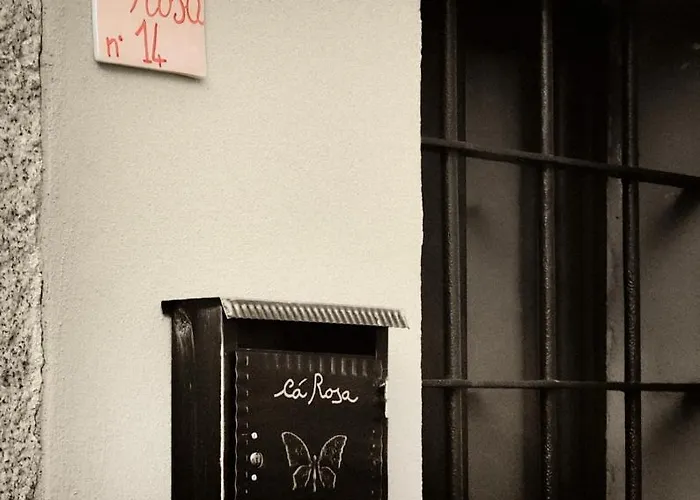 Rosa
n° 14
Cá Rosa